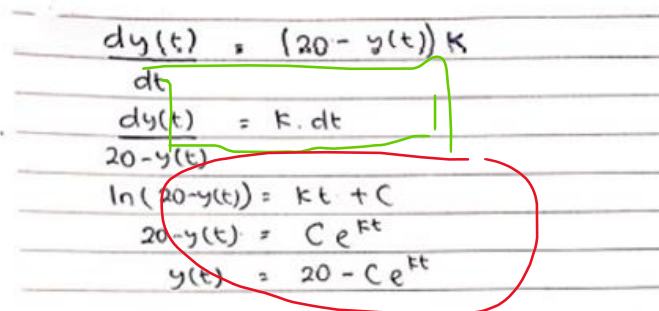 dy(t) = (20 - y(t)) K
dt
dy(t) = K. dt
20-y(t)
ln(20-y(t)) = kt + C
20-y(t) = C e^kt
y(t) = 20 - C e^kt